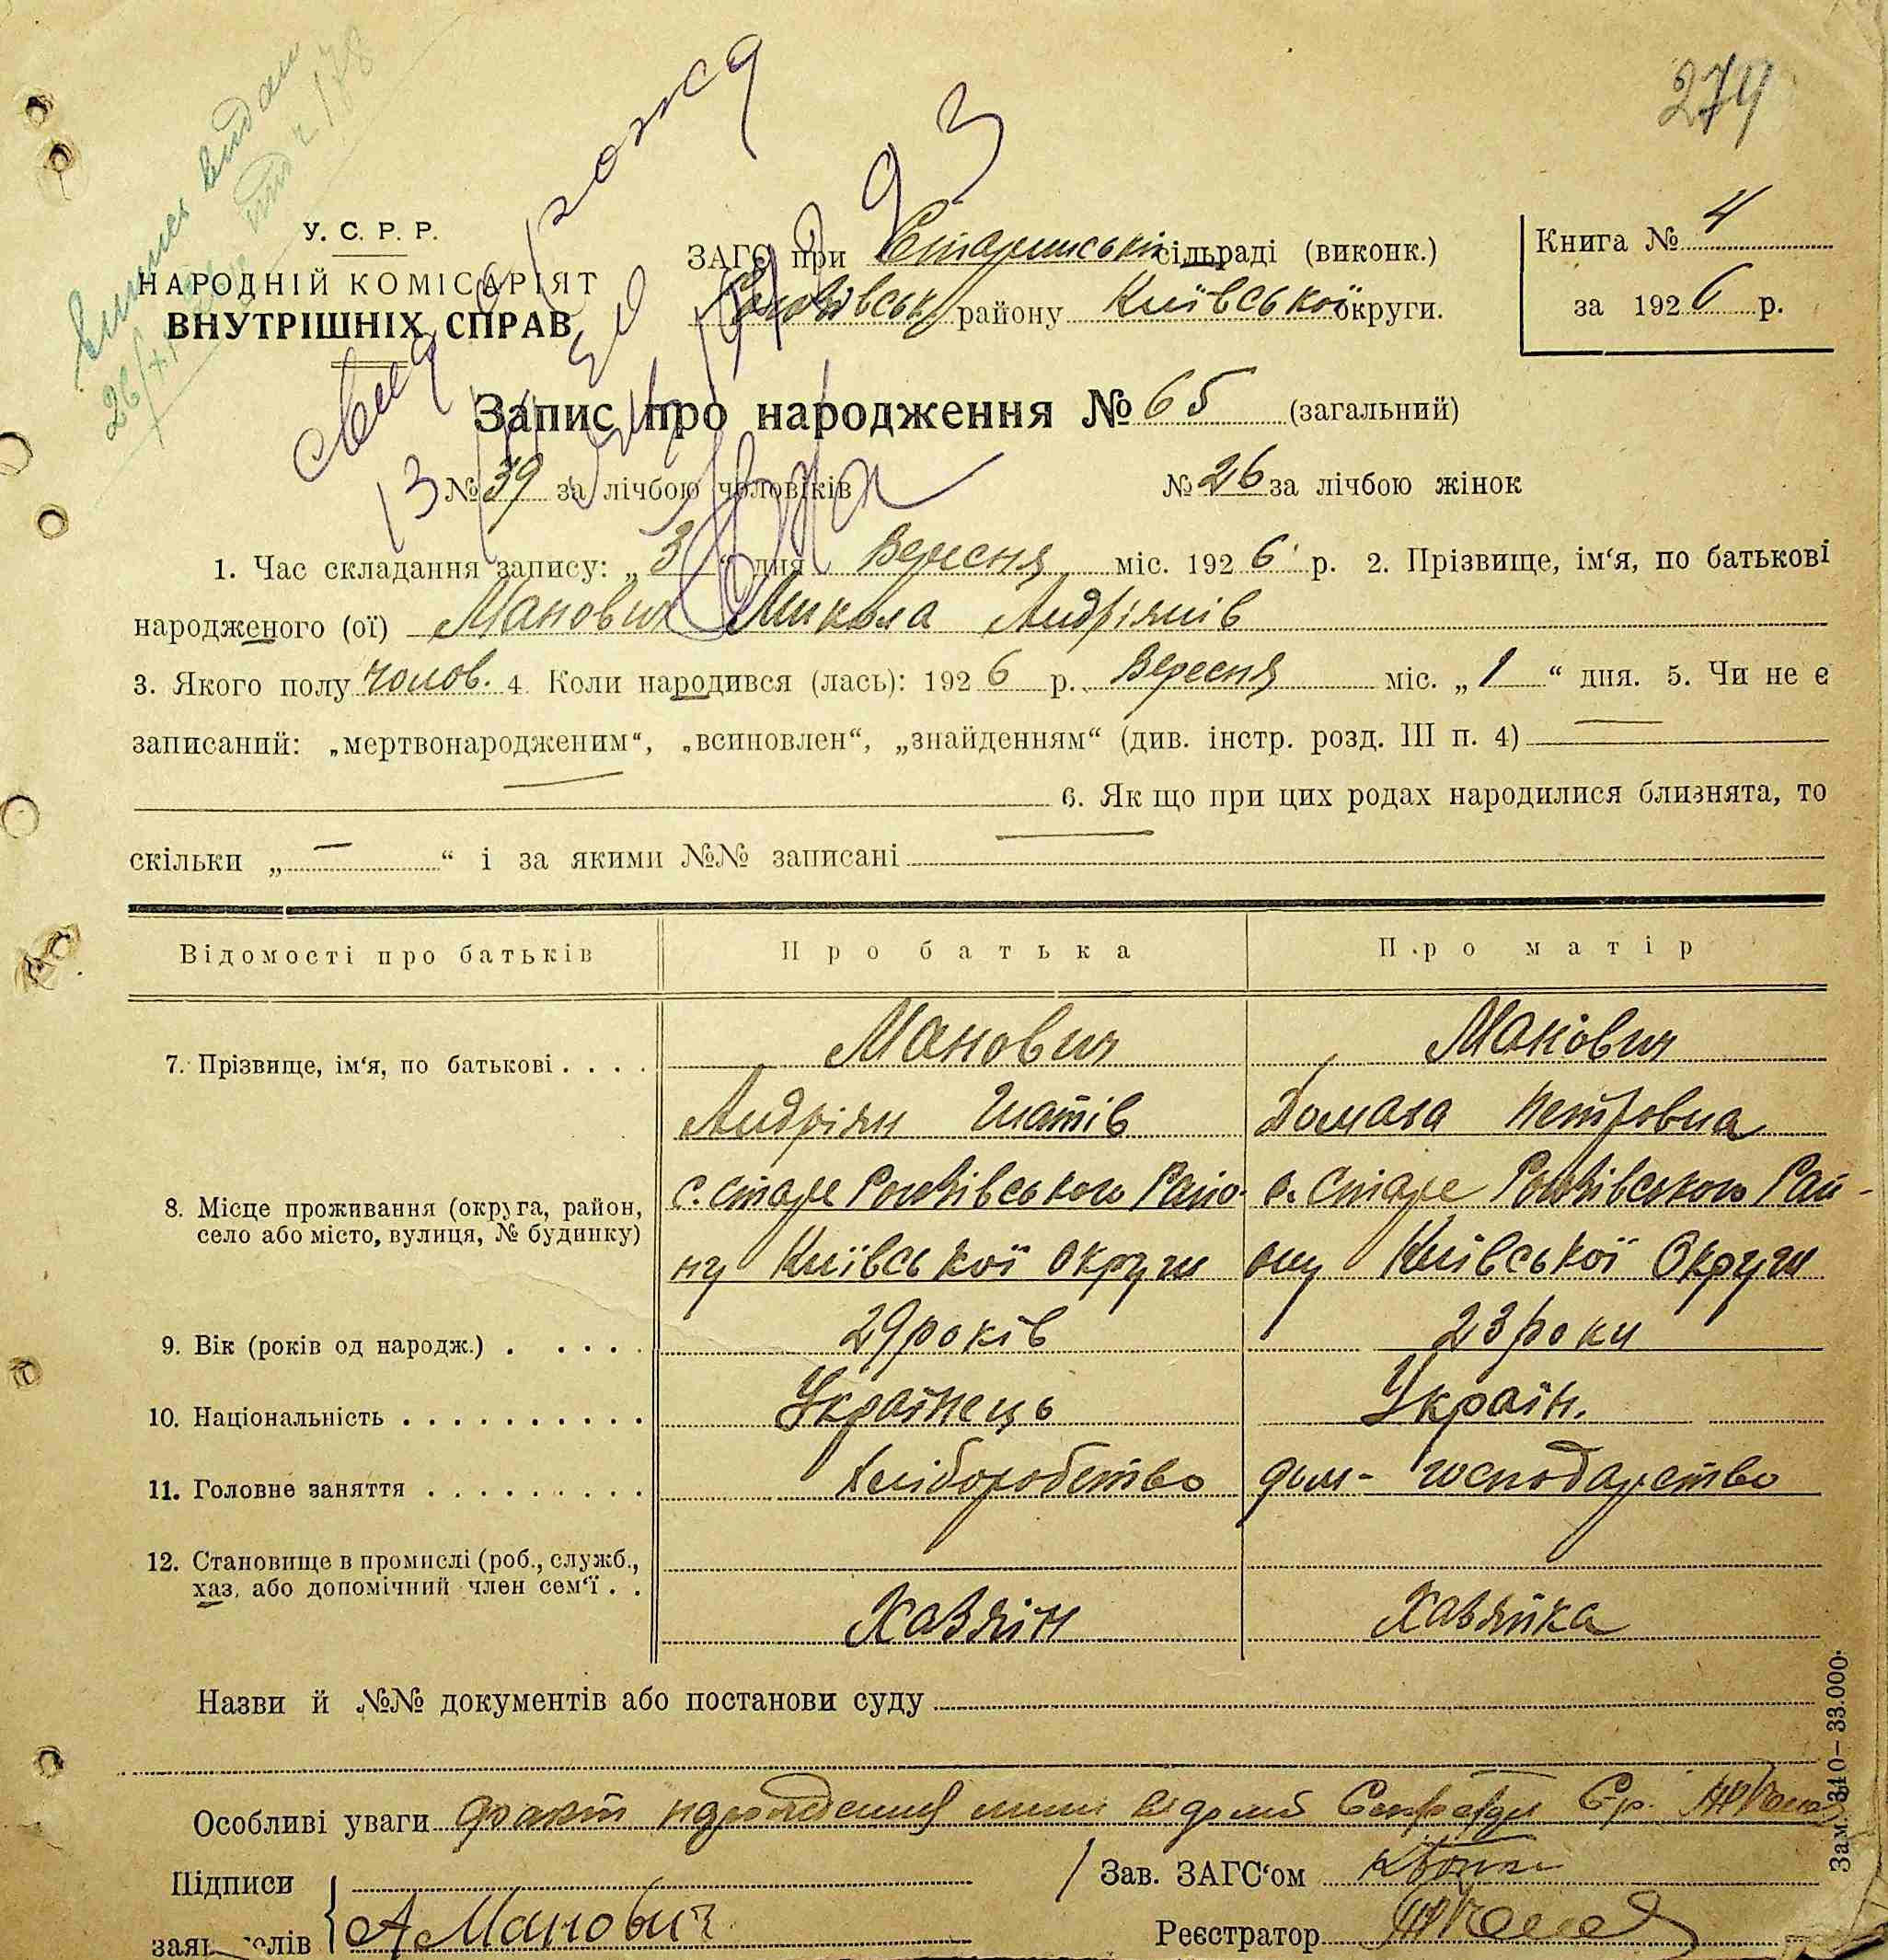 274
У. С. Р. Р.
НАРОДНІЙ КОМІСАРІЯТ
ВНУТРІШНІХ СПРАВ
ЗАГС при Старинській сільраді (виконк.)
району Київської округи.
Книга № 4
за 1926 р.
Запис про народження № 65 (загальний)
№ 39 за лічбою чоловіків № 26 за лічбою жінок
1. Час складання запису: „3“ дня Вересня міс. 1926 р. 2. Прізвище, ім‘я, по батькові
народженого (ої) Манович Микола Андріянів
3. Якого полу чолов. 4. Коли народився (лась): 1926 р. Вересня міс. „1“ дня. 5. Чи не є
записаний: „мертвонародженим“, „всиновлен“, „знайденням“ (див. інстр. розд. III п. 4) —
— 6. Як що при цих родах народилися близнята, то
скільки „—“ і за якими №№ записані —
Відомості про батьків Про батька Про матір
7. Прізвище, ім‘я, по батькові . . . . Манович Манович
Андріян Гнатів Домаха Петровна
8. Місце проживання (округа, район, с. Старе Рогозівського Райо- с. Старе Рогозівського Рай-
село або місто, вулиця, № будинку) ну Київської Округи ону Київської Округи
9. Вік (років од народж.) . . . . . 29 років 23 роки
10. Національність . . . . . . . . . . Українець Україн.
11. Головне заняття . . . . . . . . . Хліборобство дом- господарство
12. Становище в промислі (роб., служб.,
хаз. або допомічний член сем‘ї . . Хазяін Хазяйка
Назви й №№ документів або постанови суду
Особливі уваги факт
Підписи Зав. ЗАГС‘ом
А Манович Реєстратор
Зам. 310—33.000.